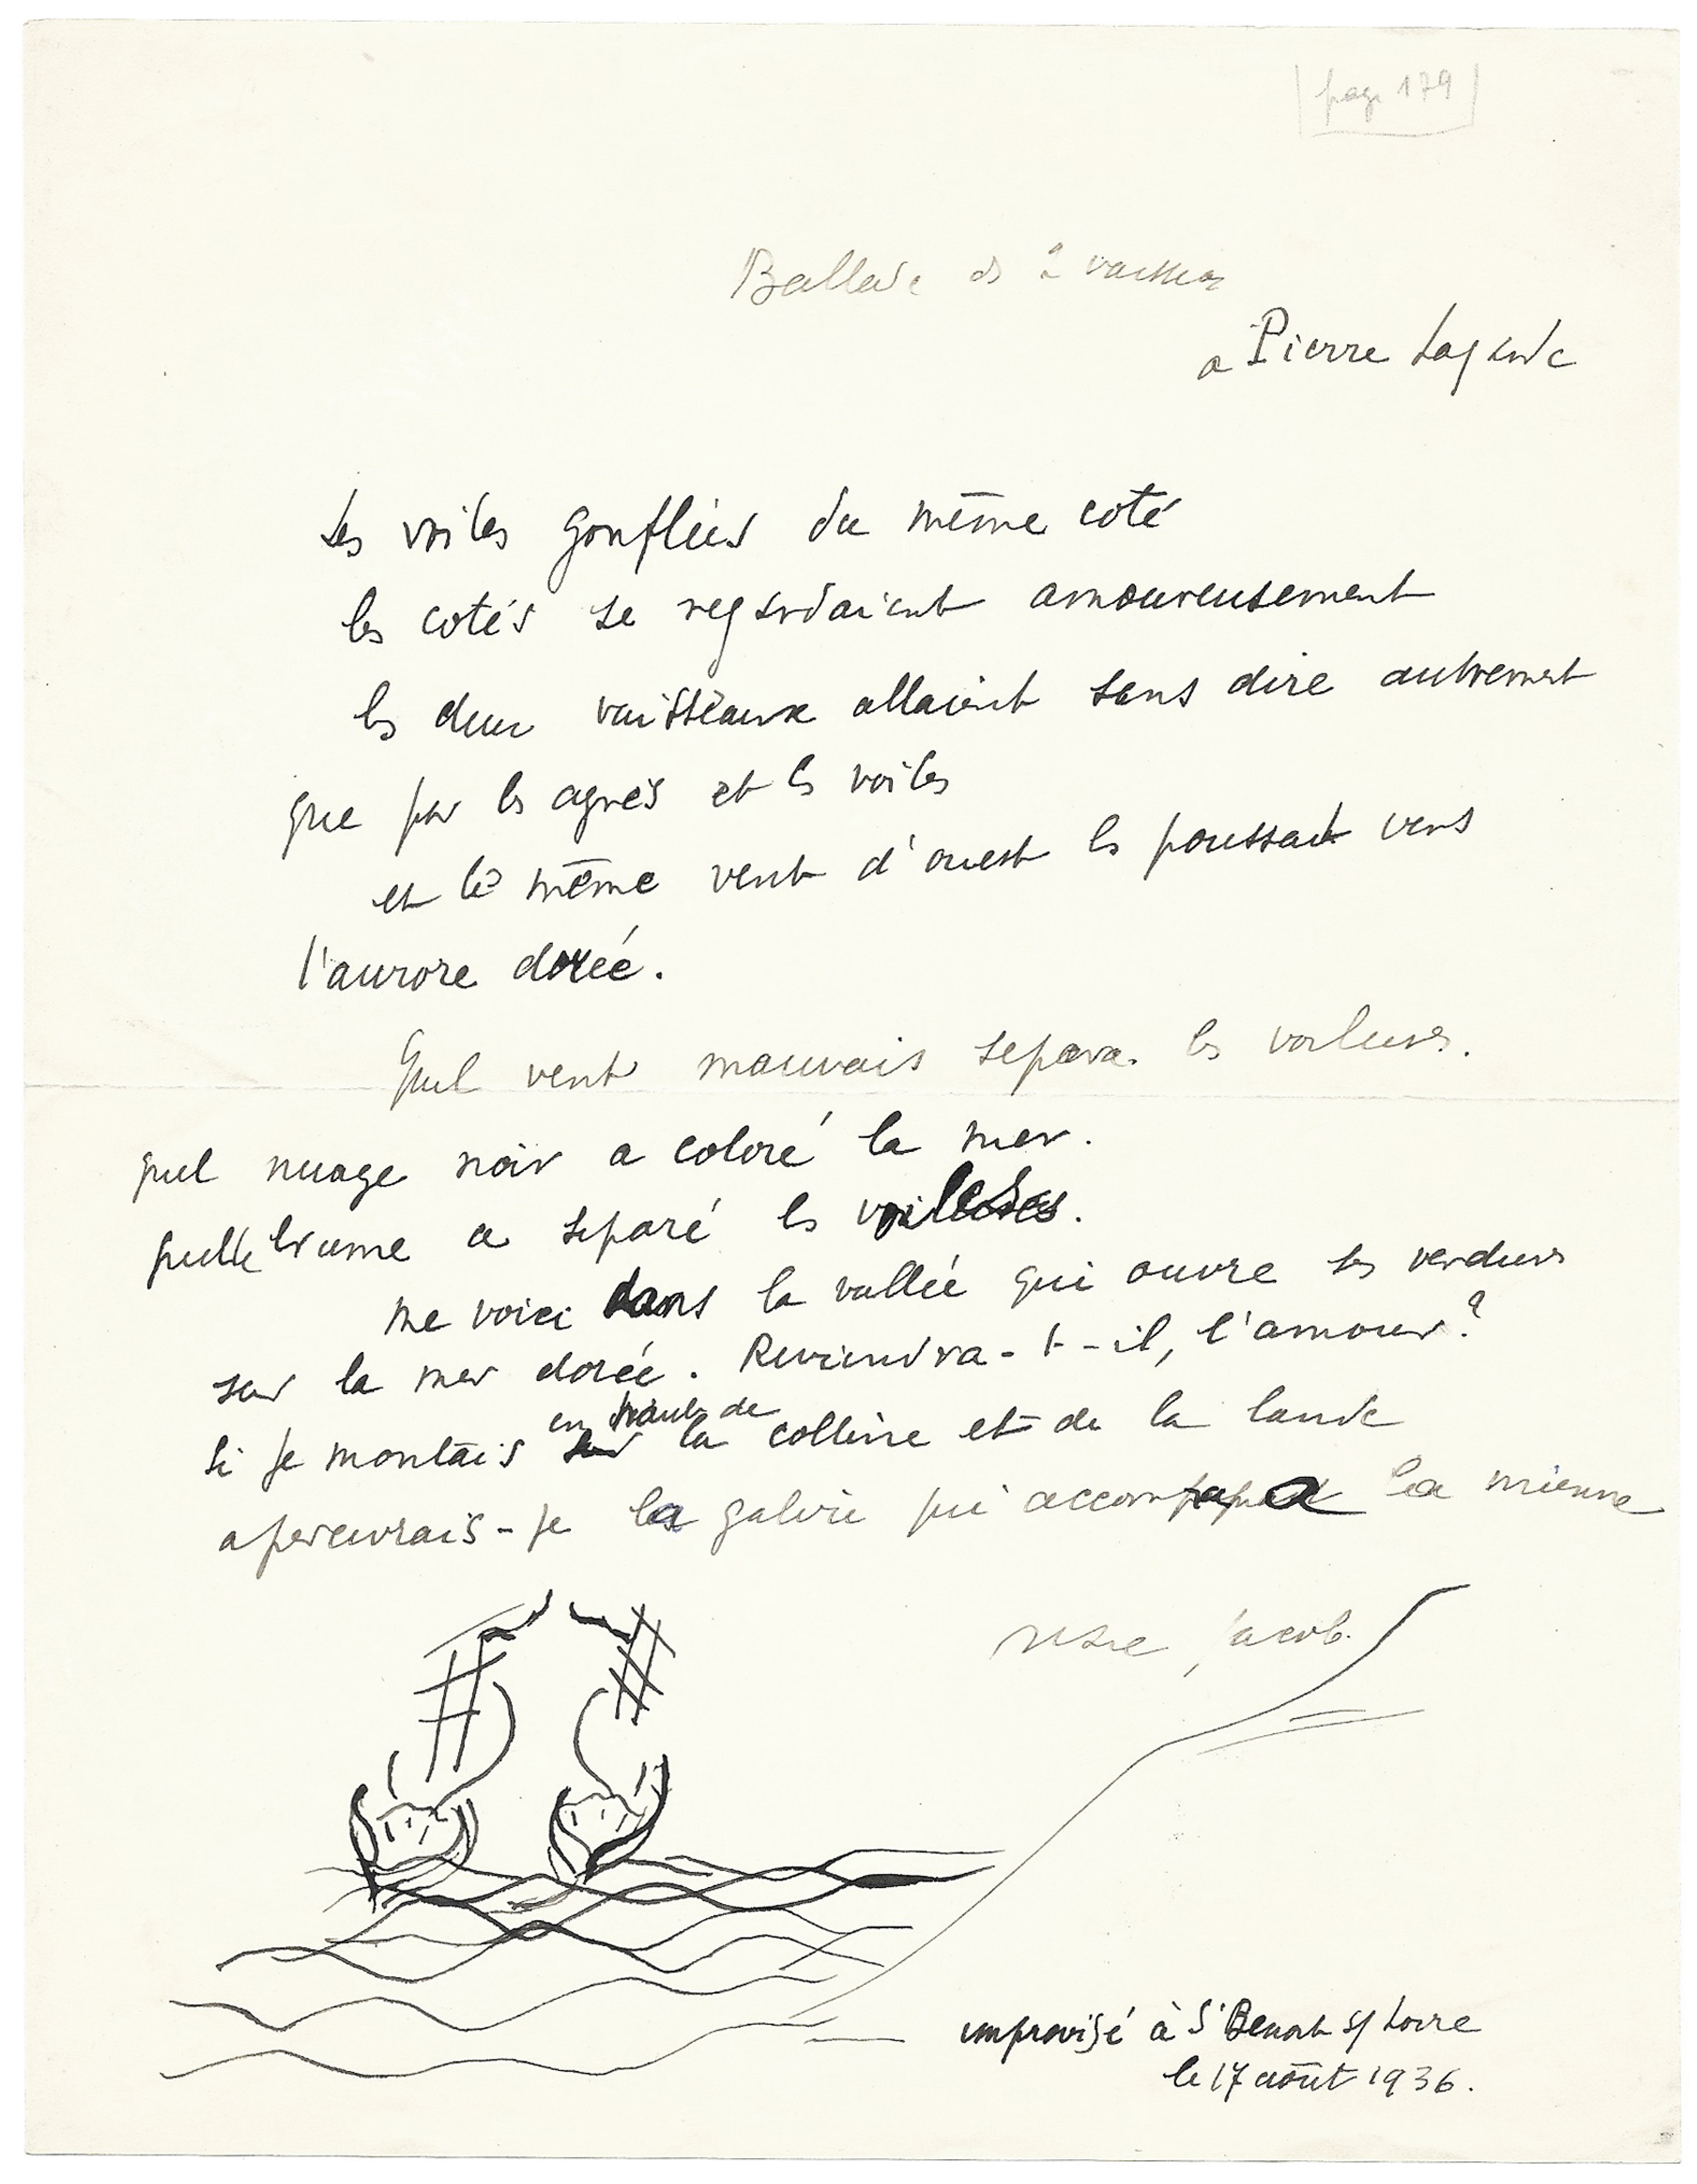 page 179
Ballade des 2 vaisseaux
a Pierre Lagarde
Les voiles gonflées du même coté
les cotés se regardaient amoureusement
les deux vaisseaux allaient sans dire autrement
que par les agrès et les voiles
et le même vent d'ouest les poussait vers
l'aurore dorée.
Quel vent mauvais separa les voiliers.
quel nuage noir a coloré la mer.
quelle brume a séparé les
me voici dans la vallée qui ouvre ses verdures
sur la mer dorée. Reviendra-t-il, l'amour?
en haut de
si je montais la colline et de la lande
apercevrais-je la galère qui accompagna la mienne
Jacob.
improvisé à St Benoit s/ Loire
le 17 août 1936.